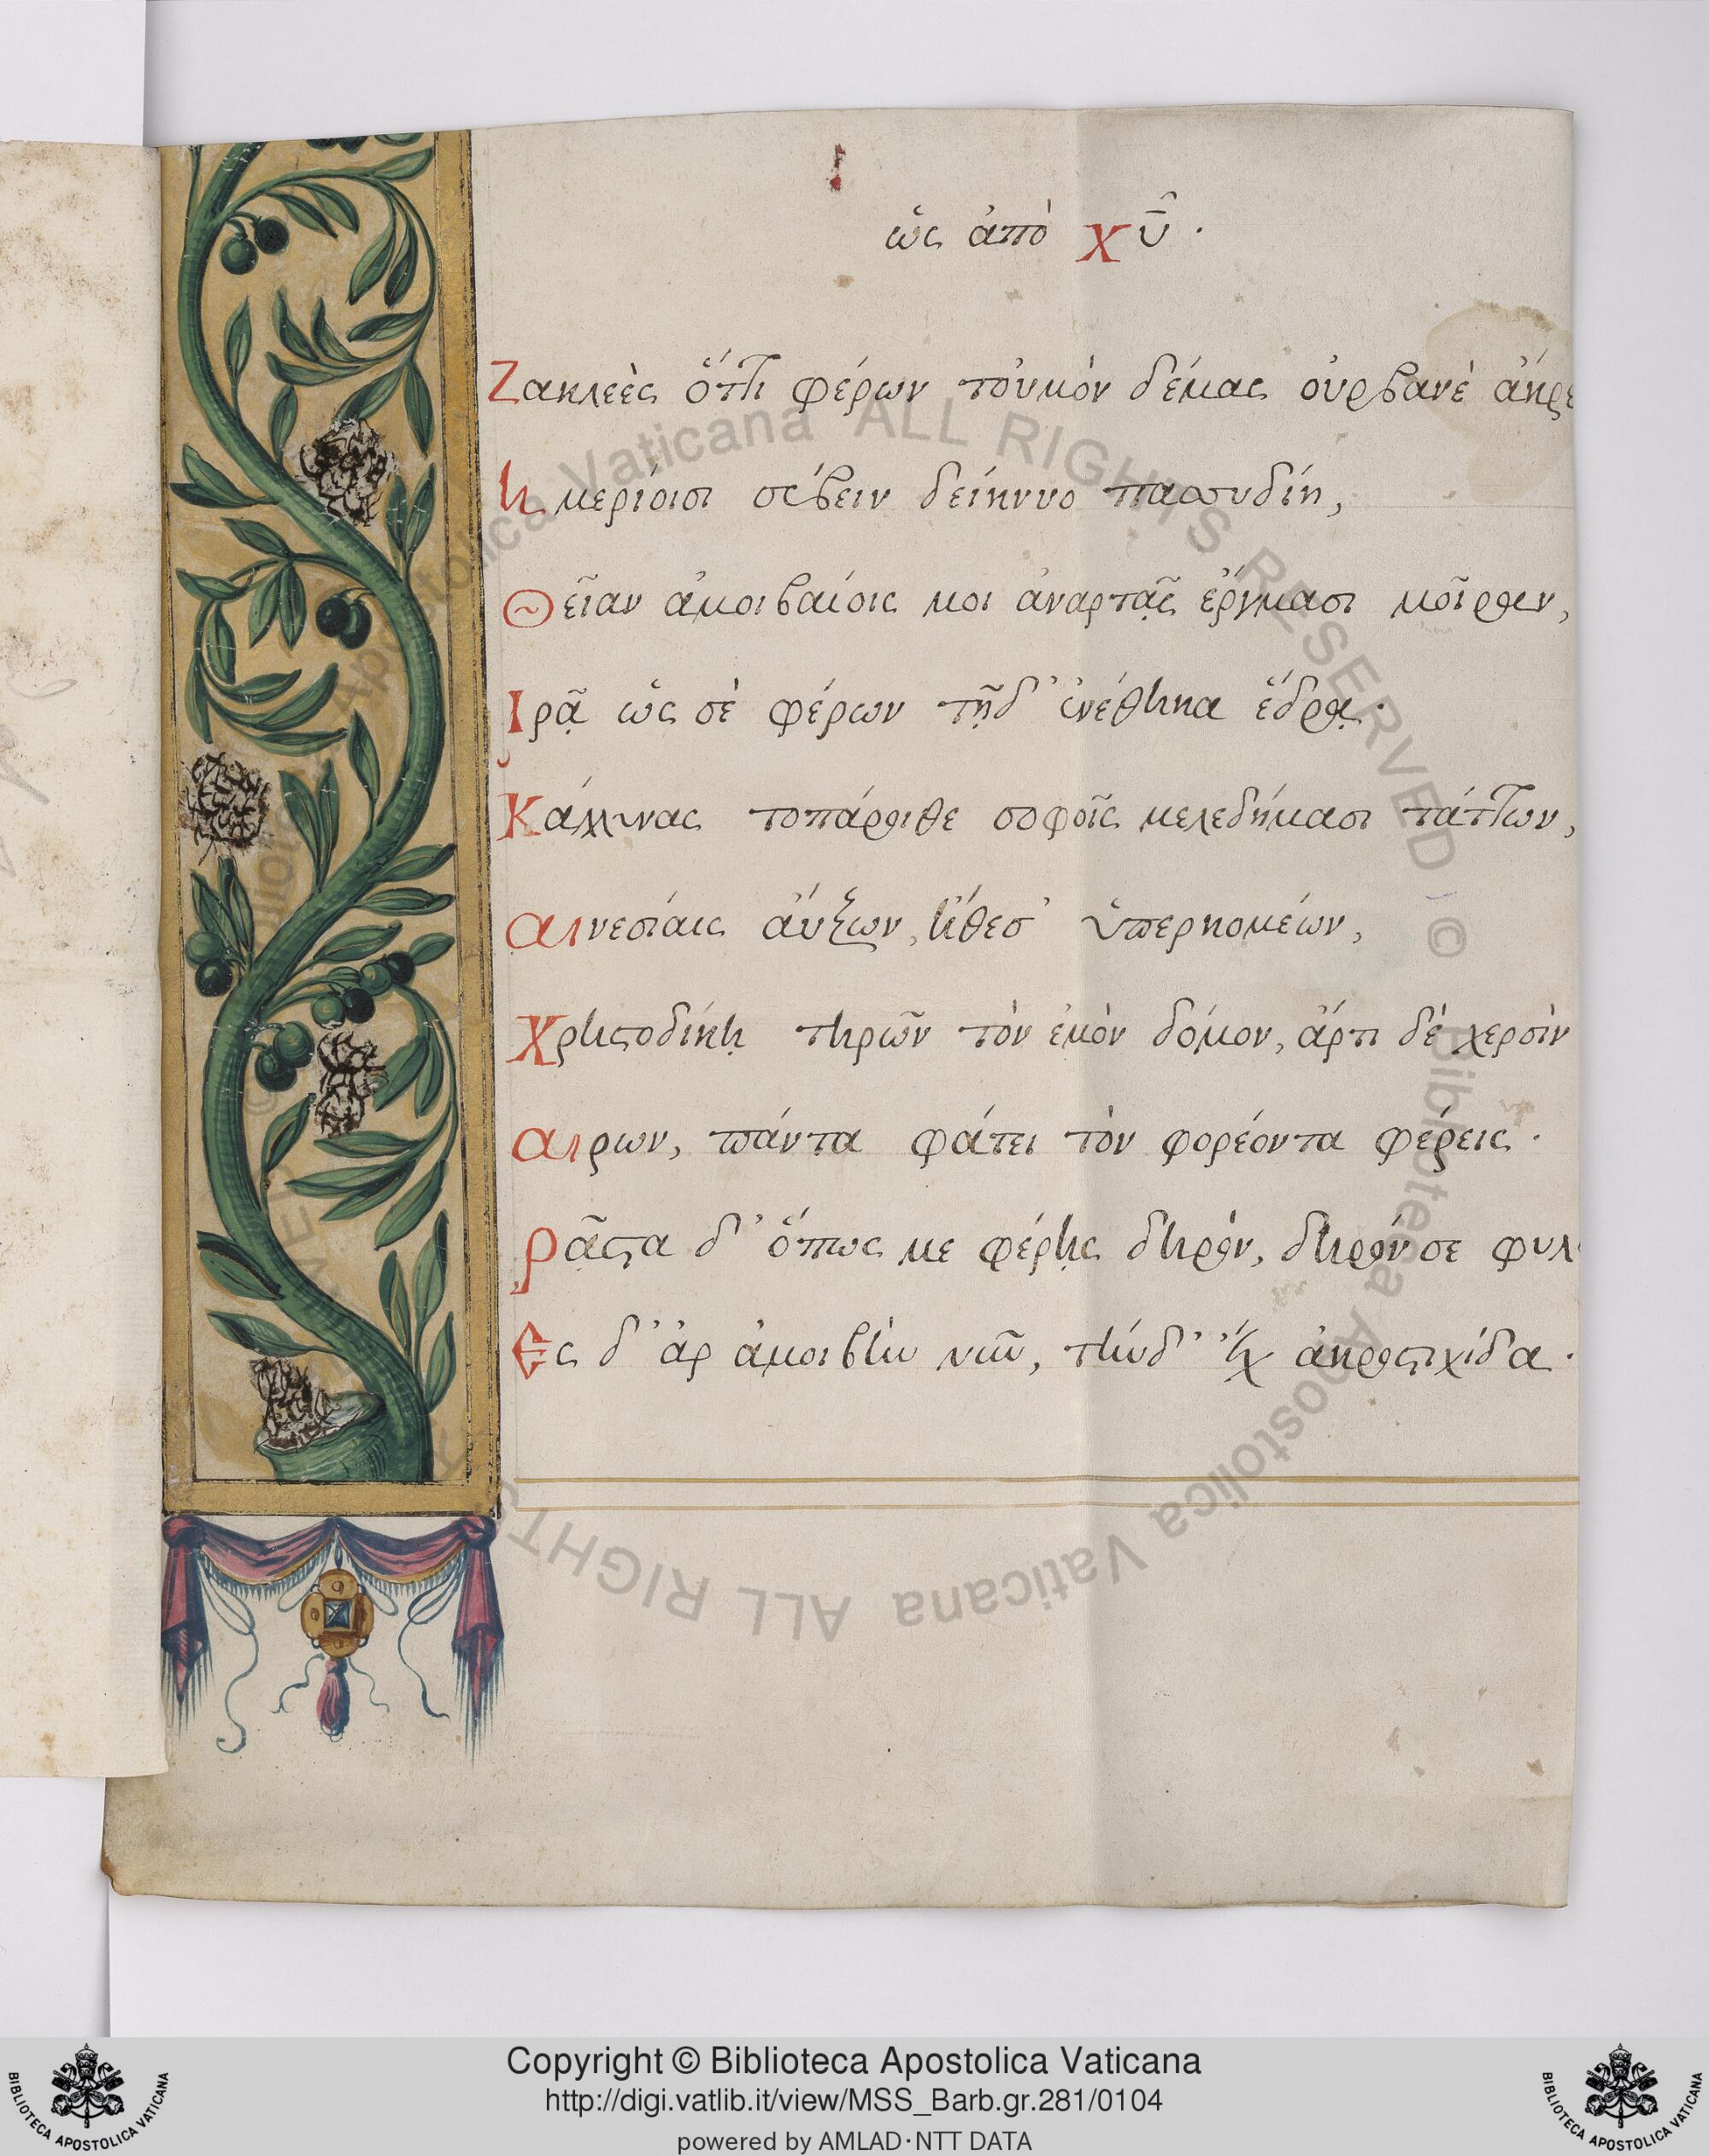 ὡς ἀπὸ Χῦ.
Ζακλεὲς ὅττι φέρων τοὐμὸν δέμας οὐρβανὲ
ἡμερίοισι σέβειν δείκνυο πασσυδίη,
Θεῖαν ἀμοιβαίοις μοι ἀναρτᾷς ἔργμασι μοῖραν,
Ιρᾷ ὡς σὲ φέρων τῇδ' ἐνέθηκα ἕδρᾳ.
Κάλλινας τοπάροιθε σοφοῖς μελεδήμασι τάττων,
αἰνεσίαις αὔξων, ἤθεσ' ὑπερκομέων,
Χρηστοδίκῃ τηρῶν τὸν ἐμὸν δόμον, ἄρτι δὲ χερσὶν
αιρων, πάντα φάτει τὸν φορέοντα φέρεις.
ρᾷστα δ' ὅπως με φέρῃς δηρόν, δηρόν σε
Ες δ' ἀρ ἀμοιβὴν νῦν, τήνδ' ἔχ' ἀκροστιχίδα.
Copyright © Biblioteca Apostolica Vaticana
http://digi.vatlib.it/view/MSS_Barb.gr.281/0104
powered by AMLAD·NTT DATA
BIBLIOTECA APOSTOLICA VATICANA
BIBLIOTECA APOSTOLICA VATICANA